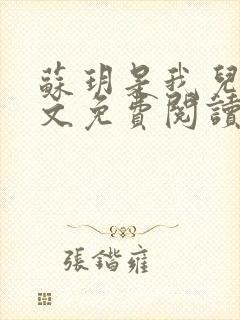 蘇玥是我兒
文免費閱讀
張鍇雍